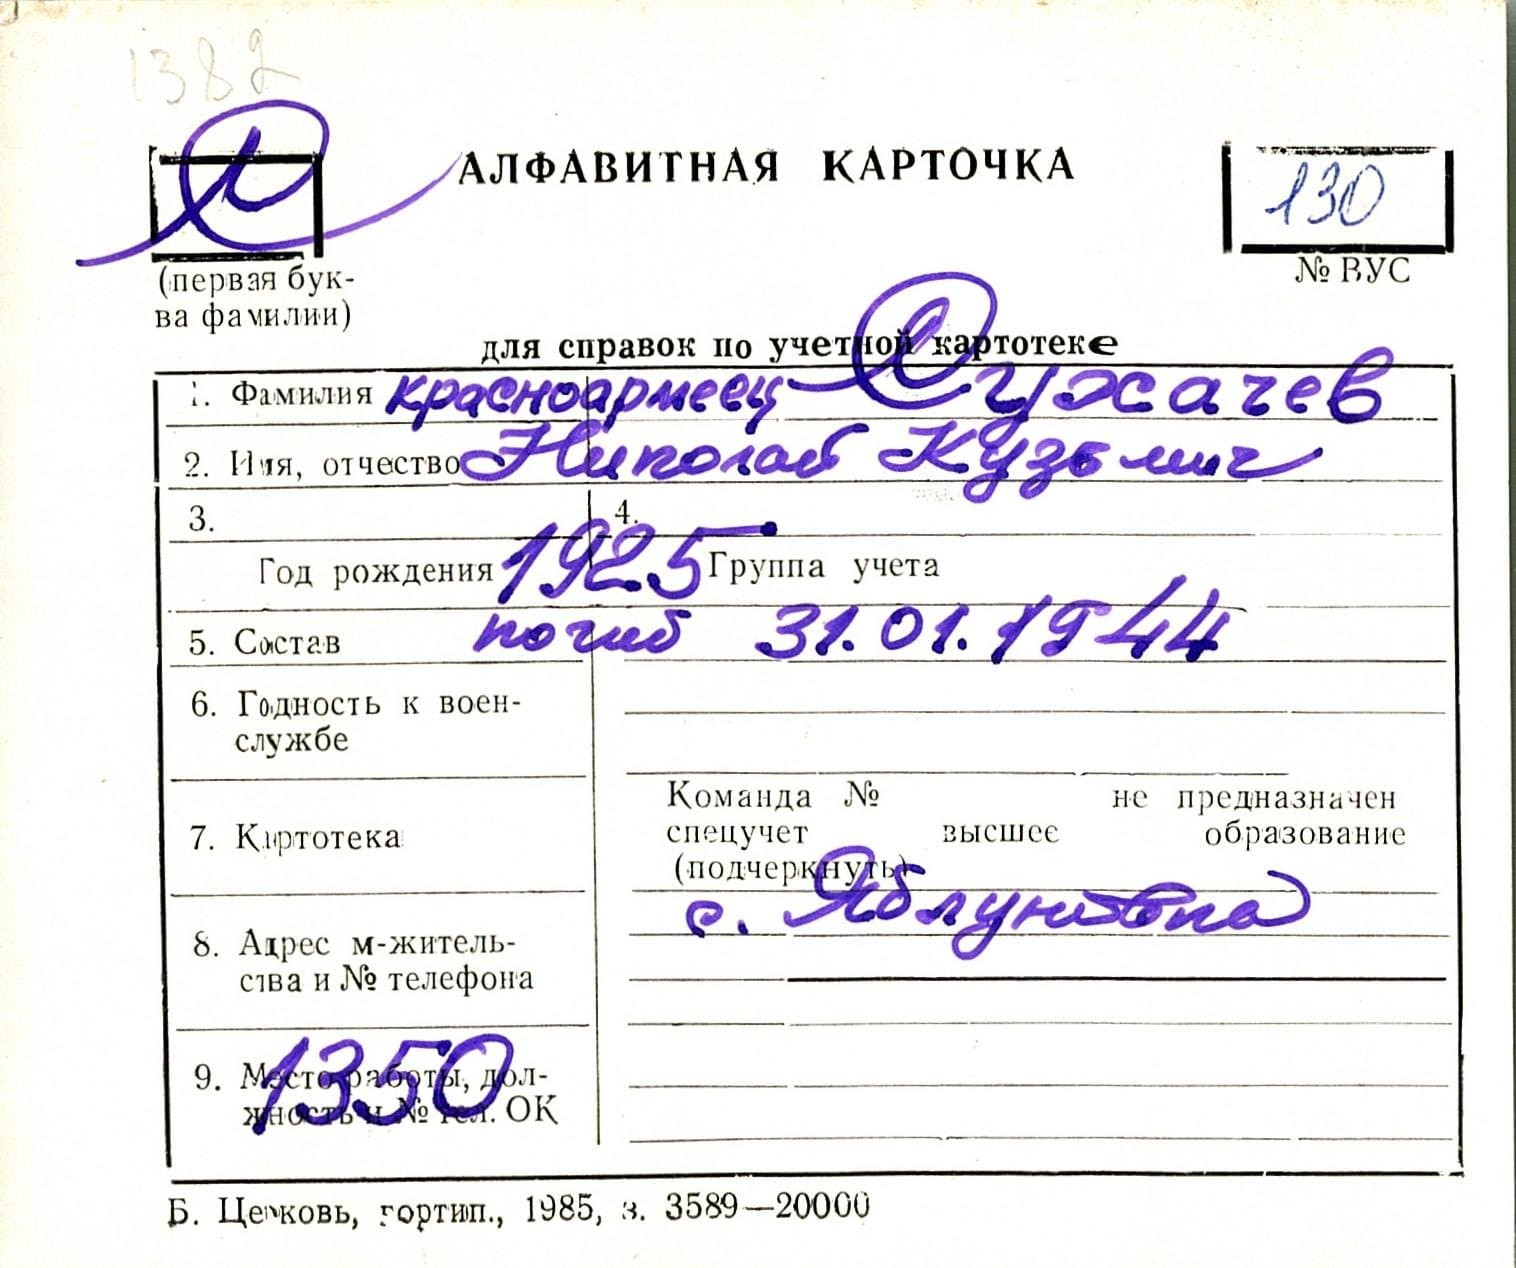 1382
АЛФАВИТНАЯ КАРТОЧКА
130
(первая бук-
ва фамилии)
№ ВУС
для справок по учетной картотеке
1. Фамилия красноармеец Сухачев
2. Имя, отчество Николай Кузьмич
3.
4.
Год рождения 1925 Группа учета
5. Состав погиб 31.01.1944
6. Годность к воен-
службе
Команда № не предназначен
7. Картотека спецучет высшее образование
(подчеркнуть)
с. Яблуновка
8. Адрес м-житель-
ства и № телефона
1350
9. Место работы, дол-
жность и № тел. ОК
Б. Церковь, гортип., 1985, з. 3589—20000